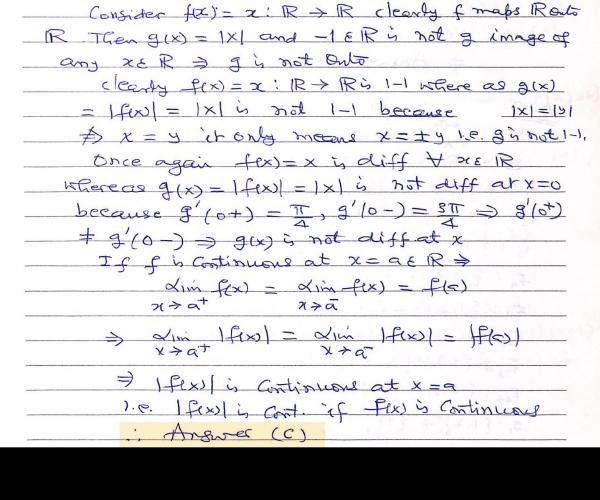 Consider f(x) = x : ℝ → ℝ clearly f maps ℝ onto
ℝ Then g(x) = |x| and -1 ∈ ℝ is not g image of
any x ∈ ℝ ⇒ g is not onto
clearly f(x) = x : ℝ → ℝ is 1-1 where as g(x)
= |f(x)| = |x| is not 1-1 because |x| = |y|
⇏ x = y it only means x = ± y i.e. g is not 1-1.
Once again f(x) = x is diff ∀ x ∈ ℝ
whereas g(x) = |f(x)| = |x| is not diff at x=0
because g'(0+) = π/4, g'(0-) = 3π/4 ⇒ g'(0⁺)
≠ g'(0-) ⇒ g(x) is not diff at x
If f is continuous at x = a ∈ ℝ ⇒
lim x→a⁺ f(x) = lim x→a⁻ f(x) = f(a)
⇒ lim x→a⁺ |f(x)| = lim x→a⁻ |f(x)| = |f(a)|
⇒ |f(x)| is continuous at x = a
i.e. |f(x)| is cont. if f(x) is continuous
∴ Answer (C)